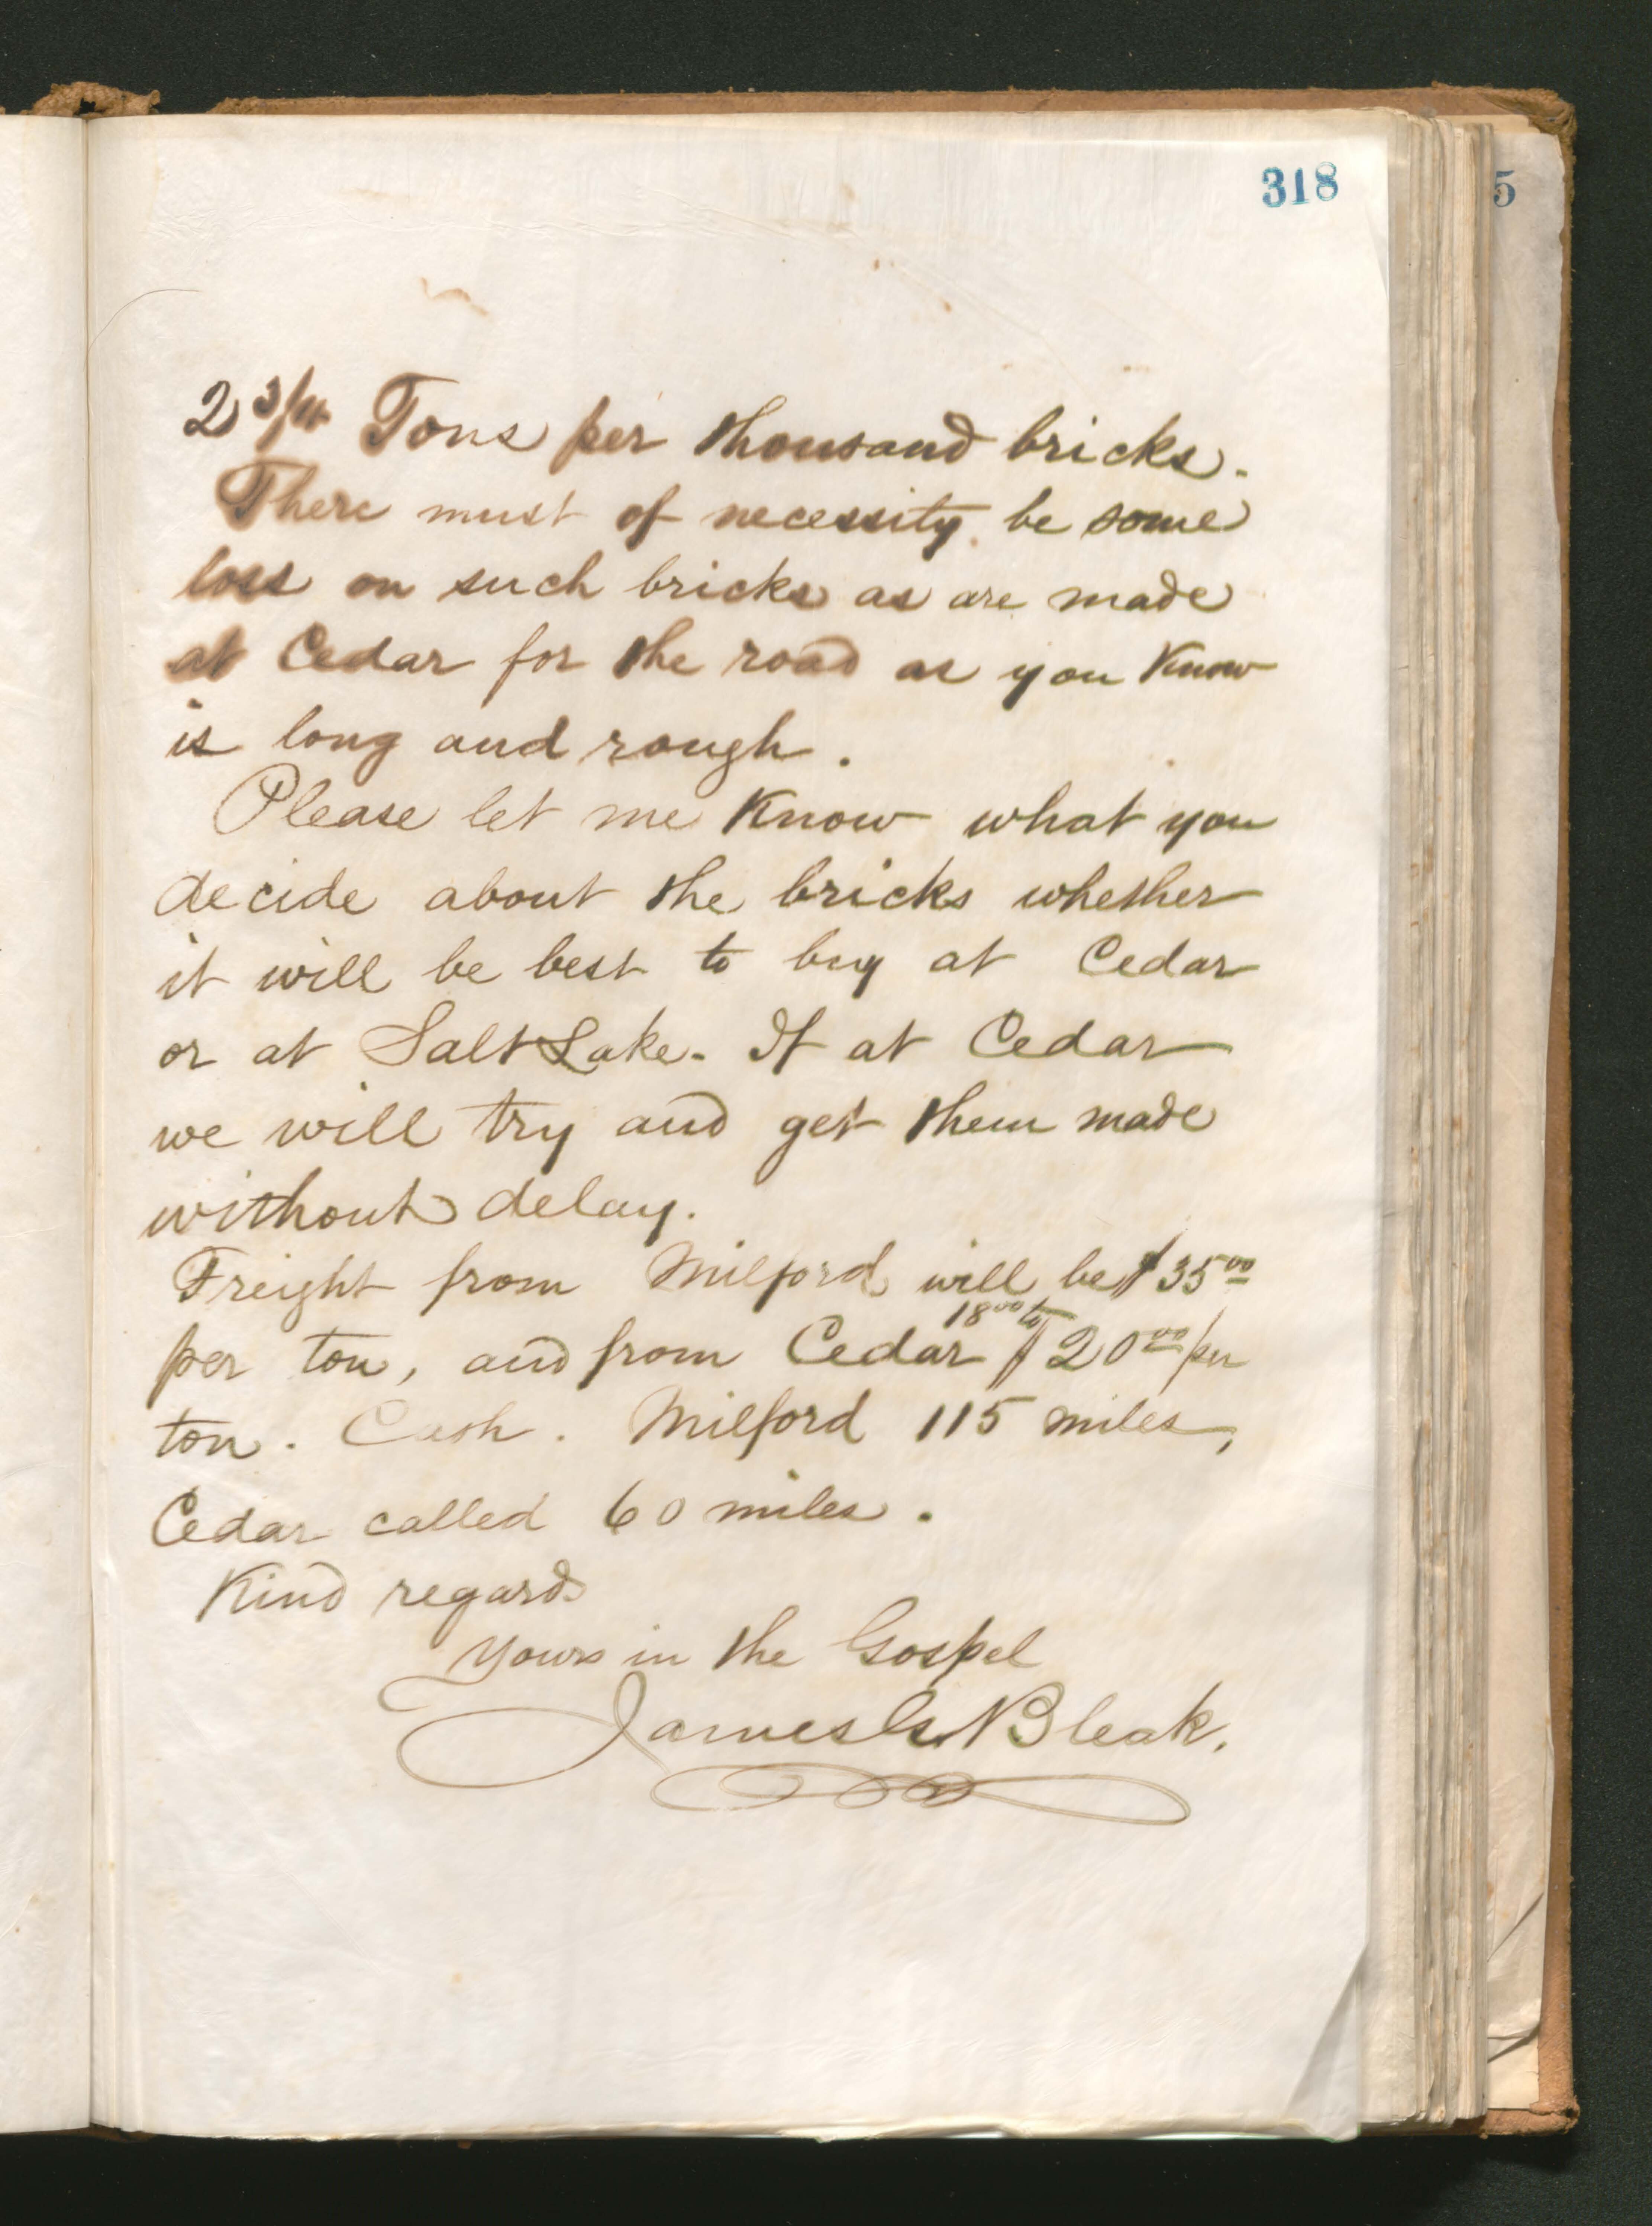 318
5
2 3/4 Tons per thousand bricks.
There must of necessity be some
loss on such bricks as are made
at Cedar for the road as you Know
is long and rough.
Please let me Know what you
decide about the bricks whether
it will be best to buy at Cedar
or at Salt Lake. If at Cedar
we will try and get them made
without delay.
Freight from Milford will be $35 00
18 00 to
per ton, and from Cedar $20 00 per
ton. Cash. Milford 115 miles,
Cedar called 60 miles.
Kind regards
Yours in the Gospel
James G. Bleak.